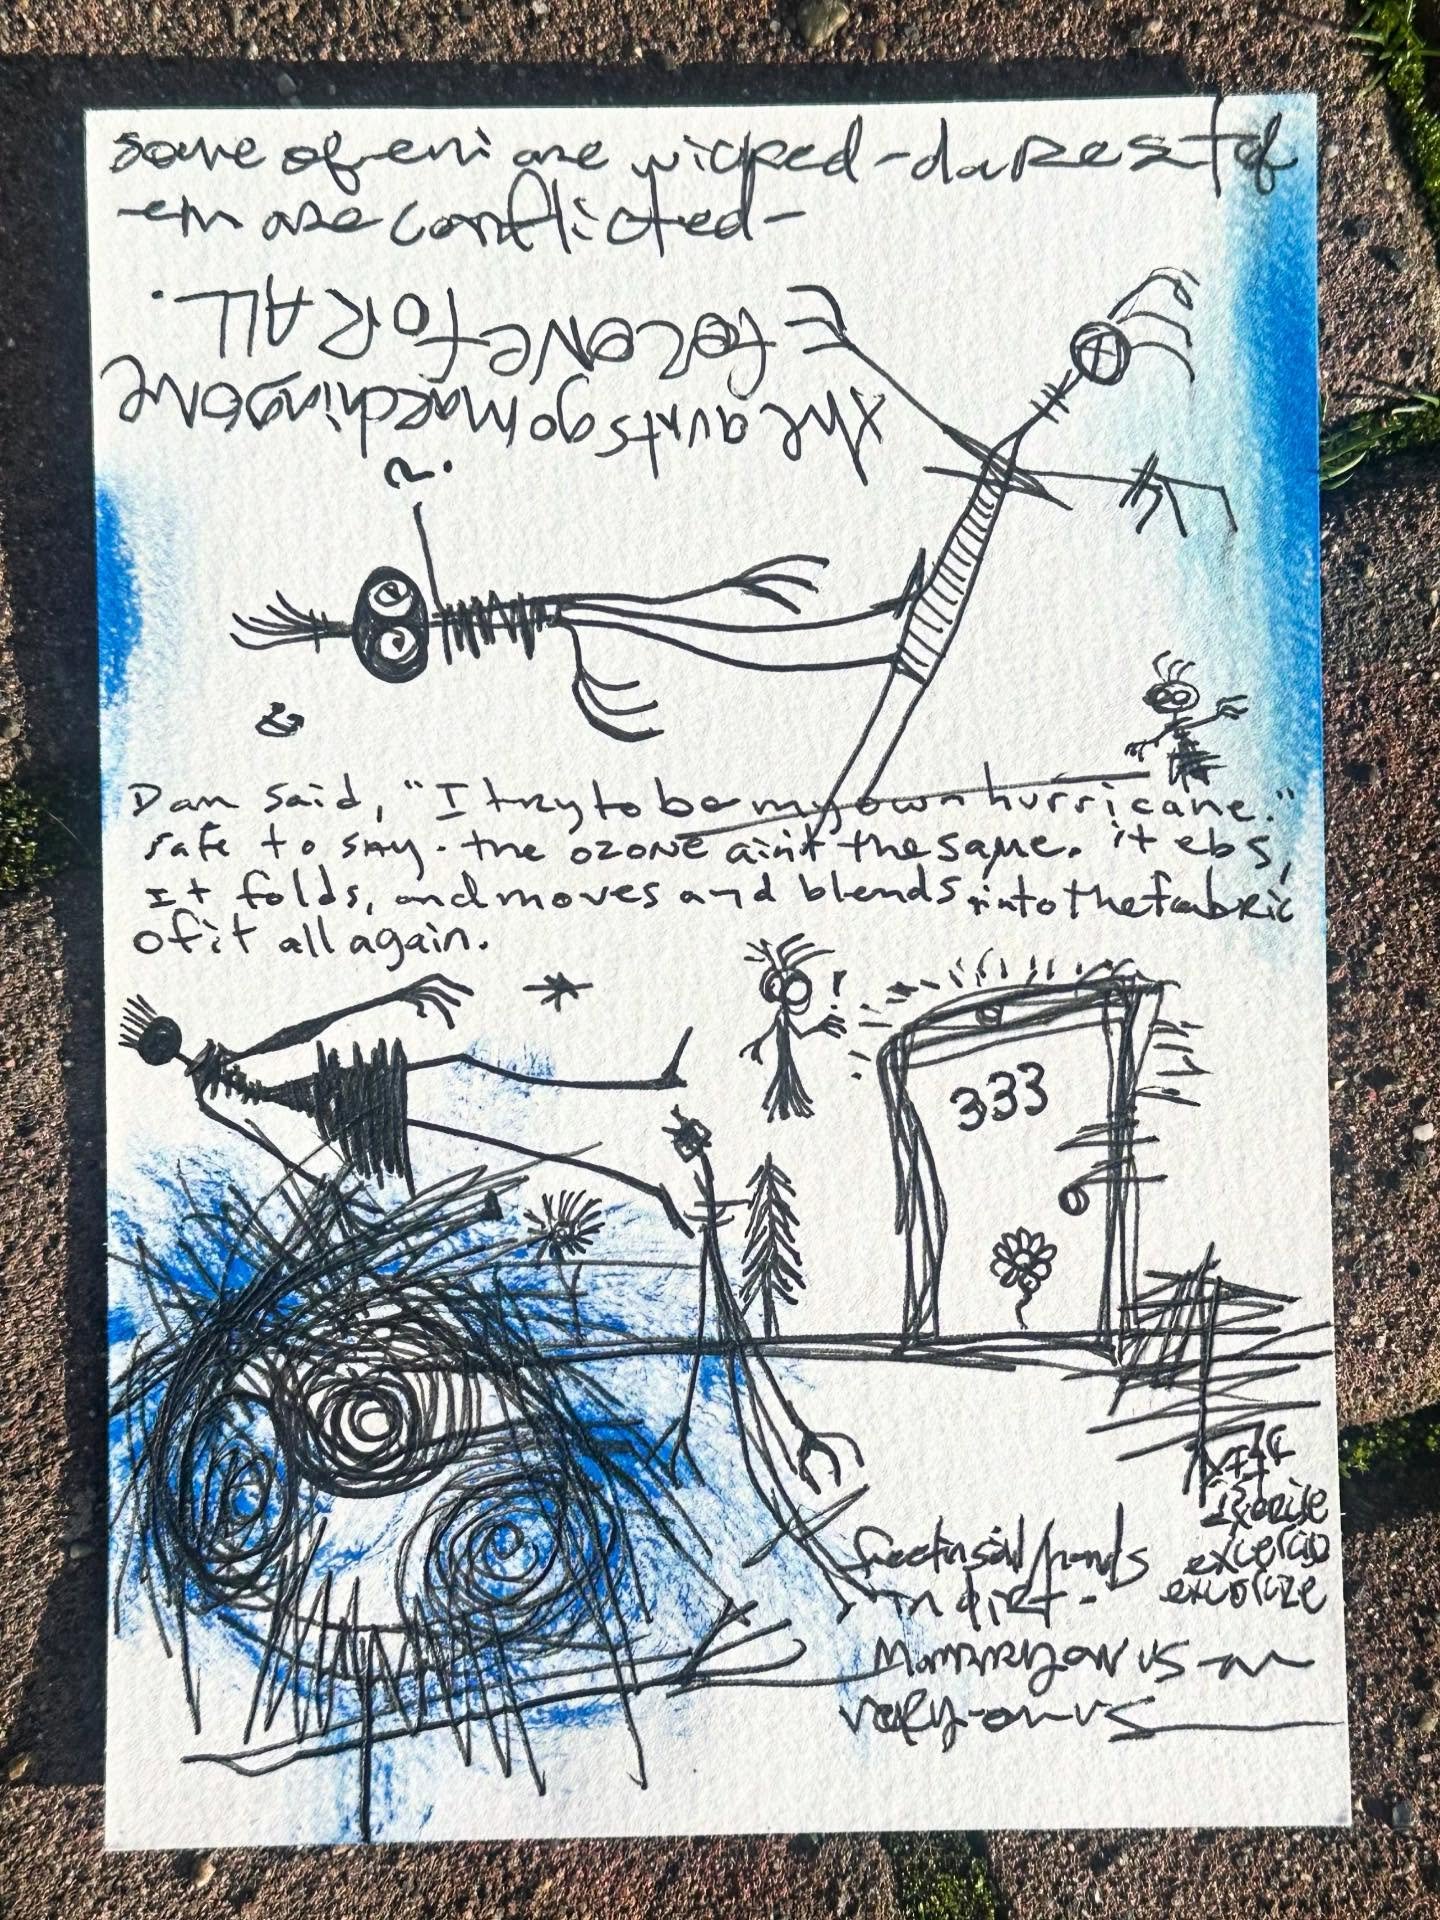 some of em are wicked - da rest of
em are conflicted -
The aunts go marching one
for ALL.
?
&
Dan said, "I try to be my own hurricane."
safe to say. the ozone ain't the same. it ebs,
It folds, and moves and blends into the fabric
of it all again.
*
!
333
feet in soil hands
in dirt -
on us
on us